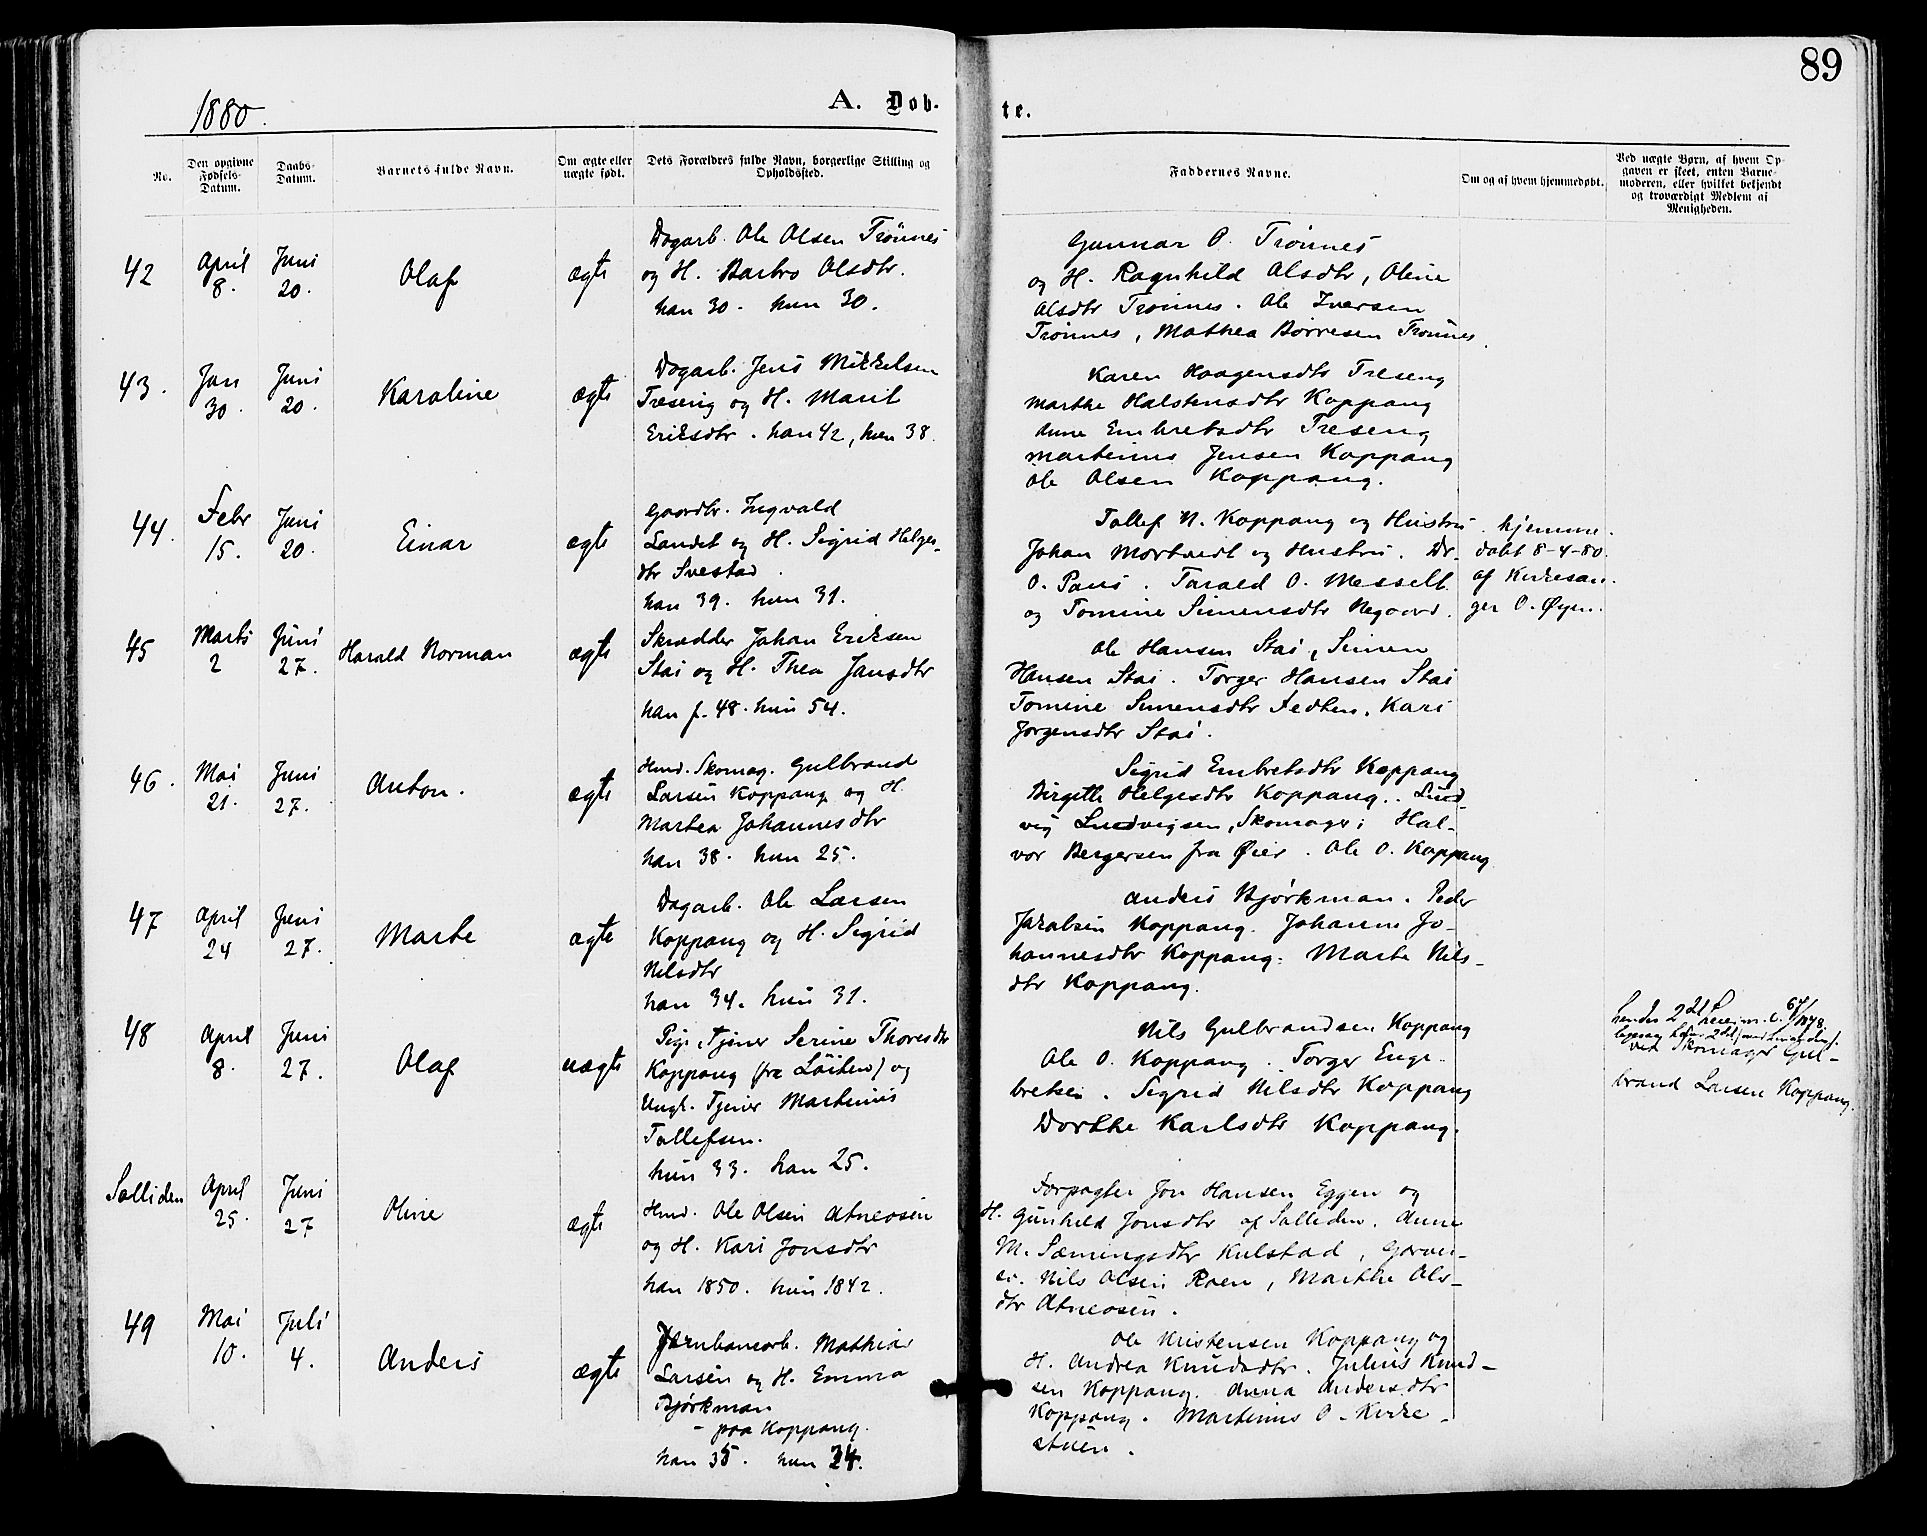 89
1880.
A. Døb-
te.
No.
Den opgivne Fødsels-Datum.
Daabs-Datum.
Barnets fulde Navn.
Om ægte eller uægte født.
Dets Forældres fulde Navn, borgerlige Stilling og Opholdssted.
Faddernes Navne.
Om og af hvem hjemmedøbt.
Ved uægte Børn, af hvem Op-
gaven er skeet, enten Barne-
moderen, eller hvilket bekjendt
og troværdigt Medlem af
Menigheden.
42
April 8.
Juni 20.
Olaf
ægte
Dagarb. Ole Olsen Trønnes
og H. Barbro Olsdtr.
han 30. hun 30.
Gunnar O. Trønnes
og H. Ragnhild Olsdtr, Oline
Olsdtr Trønnes. Ole Iversen
Trønnes, Mathea Børresen Trønnes.
43.
Jan 30.
Juni 20.
Karoline
ægte
Dagarb. Jens Mikkelsen
Træseng og H. Marit
Eriksdtr. han 42, hun 38.
Karen Haagensdtr Treseng
Marthe Halstensdtr Koppang
Anne Embretsdtr Treseng
Martinus Jensen Koppang
Ole Olsen Koppang.
44.
Febr 15.
Juni 20.
Einar
ægte
Gaardbr. Ingvald
Landet og H. Sigrid Helges-
dtr Svestad.
han 39. hun 31.
Tollef N. Koppang og Hustru
Johan Mortvedt og Hustru. Dr.
O. Paus. Tarald O. Messelt
og Tomine Simensdtr Negaard.
hjemme-
døbt 8-4-80.
af Kirkesan-
ger O. Øyen.
45
Marts 2
Juni 27.
Harald Norman
ægte
Skrædder Johan Eriksen
Stai og H. Thea Jansdtr
han f. 48. hun 54.
Ole Hansen Stai, Simen
Hansen Stai. Torger Hansen Stai
Tomine Simensdtr , Kari
Jørgensdtr Stai.
46.
Mai 21.
Juni 27.
Anton.
ægte
Hmd. Skomag. Gulbrand
Larsen Koppang og H.
Martea Johannesdtr
han 38. hun 25.
Sigrid Embretsdtr Koppang
Birgitte Helgesdtr Koppang. Lud-
vig Ludvigsen, Skomager; Hal-
vor Bergersen fra Øier. Ole O. Koppang
47
April 24
Juni 27.
Marte
ægte
Dagarb. Ole Larsen
Koppang og H. Sigrid
Nilsdtr
han 34. hun 31.
Anders Bjørkman. Peder
Jakobsen Koppang. Johanne Jo-
hannesdtr Koppang. Marte Nils-
dtr Koppang.
48
April 8.
Juni 27.
Olaf
uægte
Pige, Tjener Serine Thoresdtr
Koppang (fra Löiten) og
Ungk. Tjener Martinus
Tollefsen.
hun 33. han 25.
Nils Gulbrandsen Koppang
Ole O. Koppang. Torger Enge-
bretsen. Sigrid Nilsdtr Koppang
Dorthe Karlsdtr Koppang.
hendes 2det
ved Skomager Gul-
brand Larsen Koppang.
Solliden
April 25.
Juni 27
Oline
ægte
Hmd. Ole Olsen Atneosen
og H. Kari Jonsdtr
han 1850. hun 1842.
Forpagter Jon Hansen Eggen og
H. Gunhild Jonsdtr af Solliden. Anne
M. Sæmingsdtr Kulstad,
Nils Olsen Roen, Marthe Ols-
dtr Atneosen.
49
Mai 10.
Juli 4.
Anders
ægte
Jernbanearb. Mathias
Larsen og H. Emma
Bjørkman
- paa Koppang.
han 35. hun 24.
Ole Kristensen Koppang og
H. Andrea Knudsdtr. Julius Knud-
sen Koppang. Anna Andersdtr
Koppang. Martinus O. Kirke-
stuen.